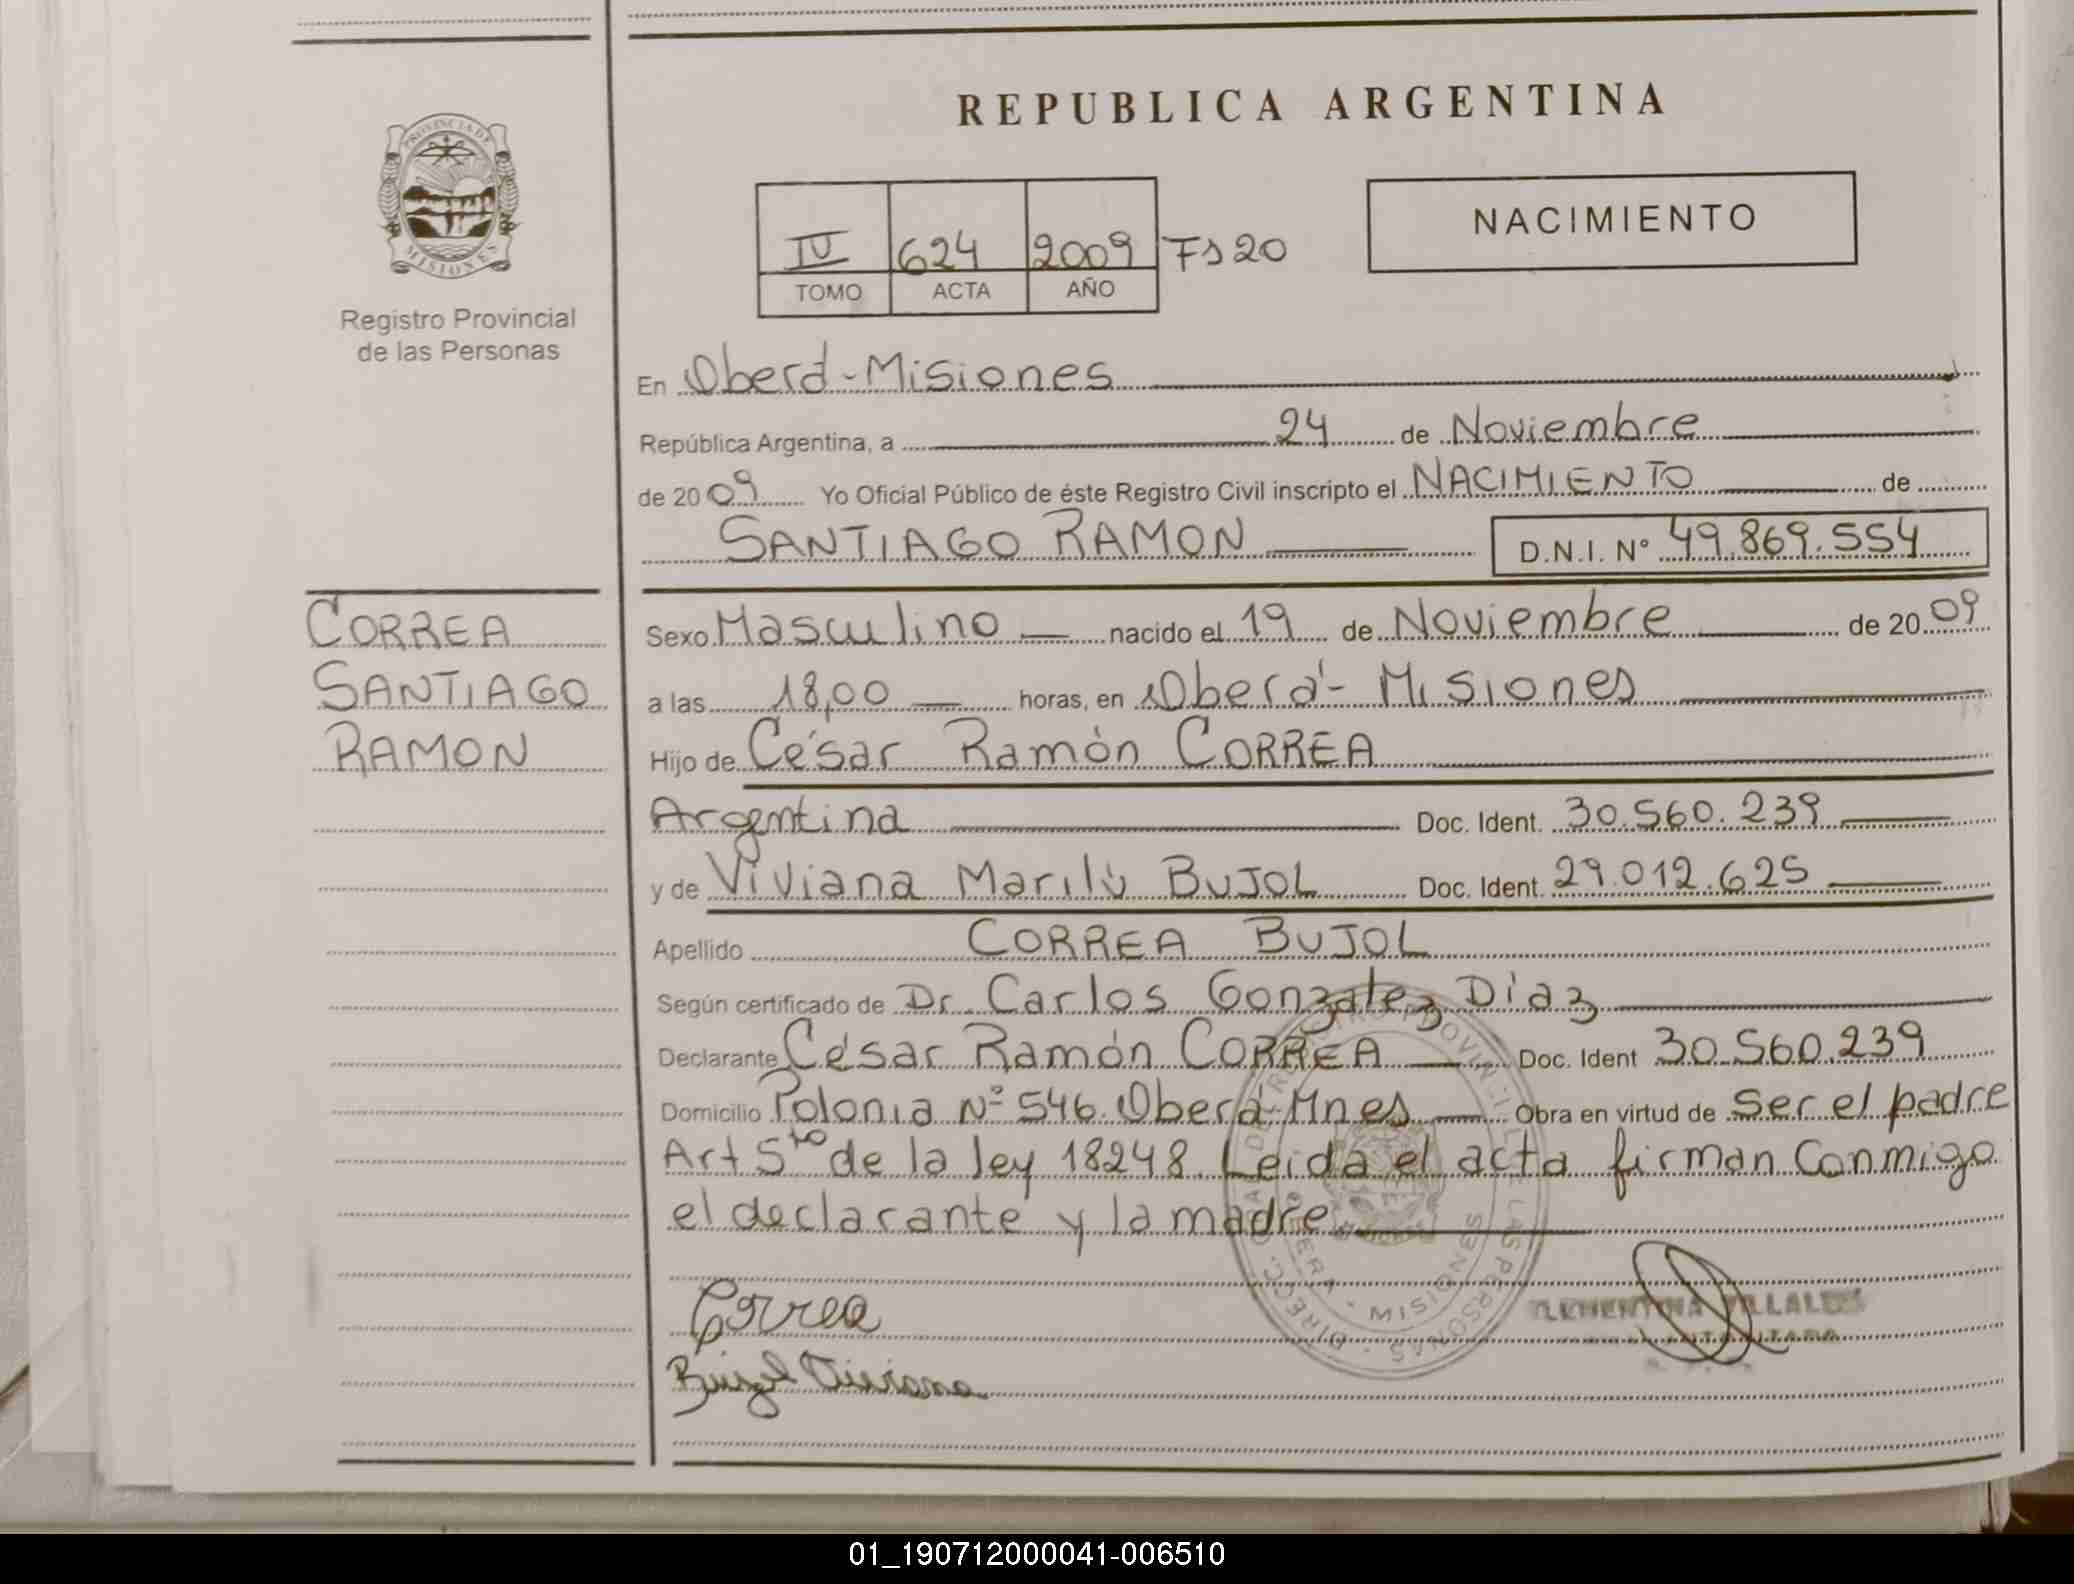 REPUBLICA ARGENTINA
PROVINCIA DE
MISIONES
Registro Provincial
de las Personas
IV 624 2009 Fs 20
TOMO ACTA AÑO
NACIMIENTO
En Oberá - Misiones
República Argentina, a 24 de Noviembre
de 2009 Yo Oficial Público de éste Registro Civil inscripto el NACIMIENTO de
SANTIAGO RAMON D.N.I. Nº 49.869.554
CORREA
SANTIAGO
RAMON
Sexo Masculino nacido el 19 de Noviembre de 2009
a las 18,00 horas, en Oberá - Misiones
Hijo de César Ramón CORREA
Argentina Doc. Ident. 30.560.239
y de Viviana Marilú BUJOL Doc. Ident. 29.012.625
Apellido CORREA BUJOL
Según certificado de Dr. Carlos Gonzalez Díaz
Declarante César Ramón CORREA Doc. Ident 30.560.239
Domicilio Polonia Nº 546. Oberá - Mnes Obra en virtud de Ser el padre
Art 5to de la ley 18248. Leida el acta firman Conmigo
el declarante y la madre.
Correa
Viviana
MISIONES
01_190712000041-006510